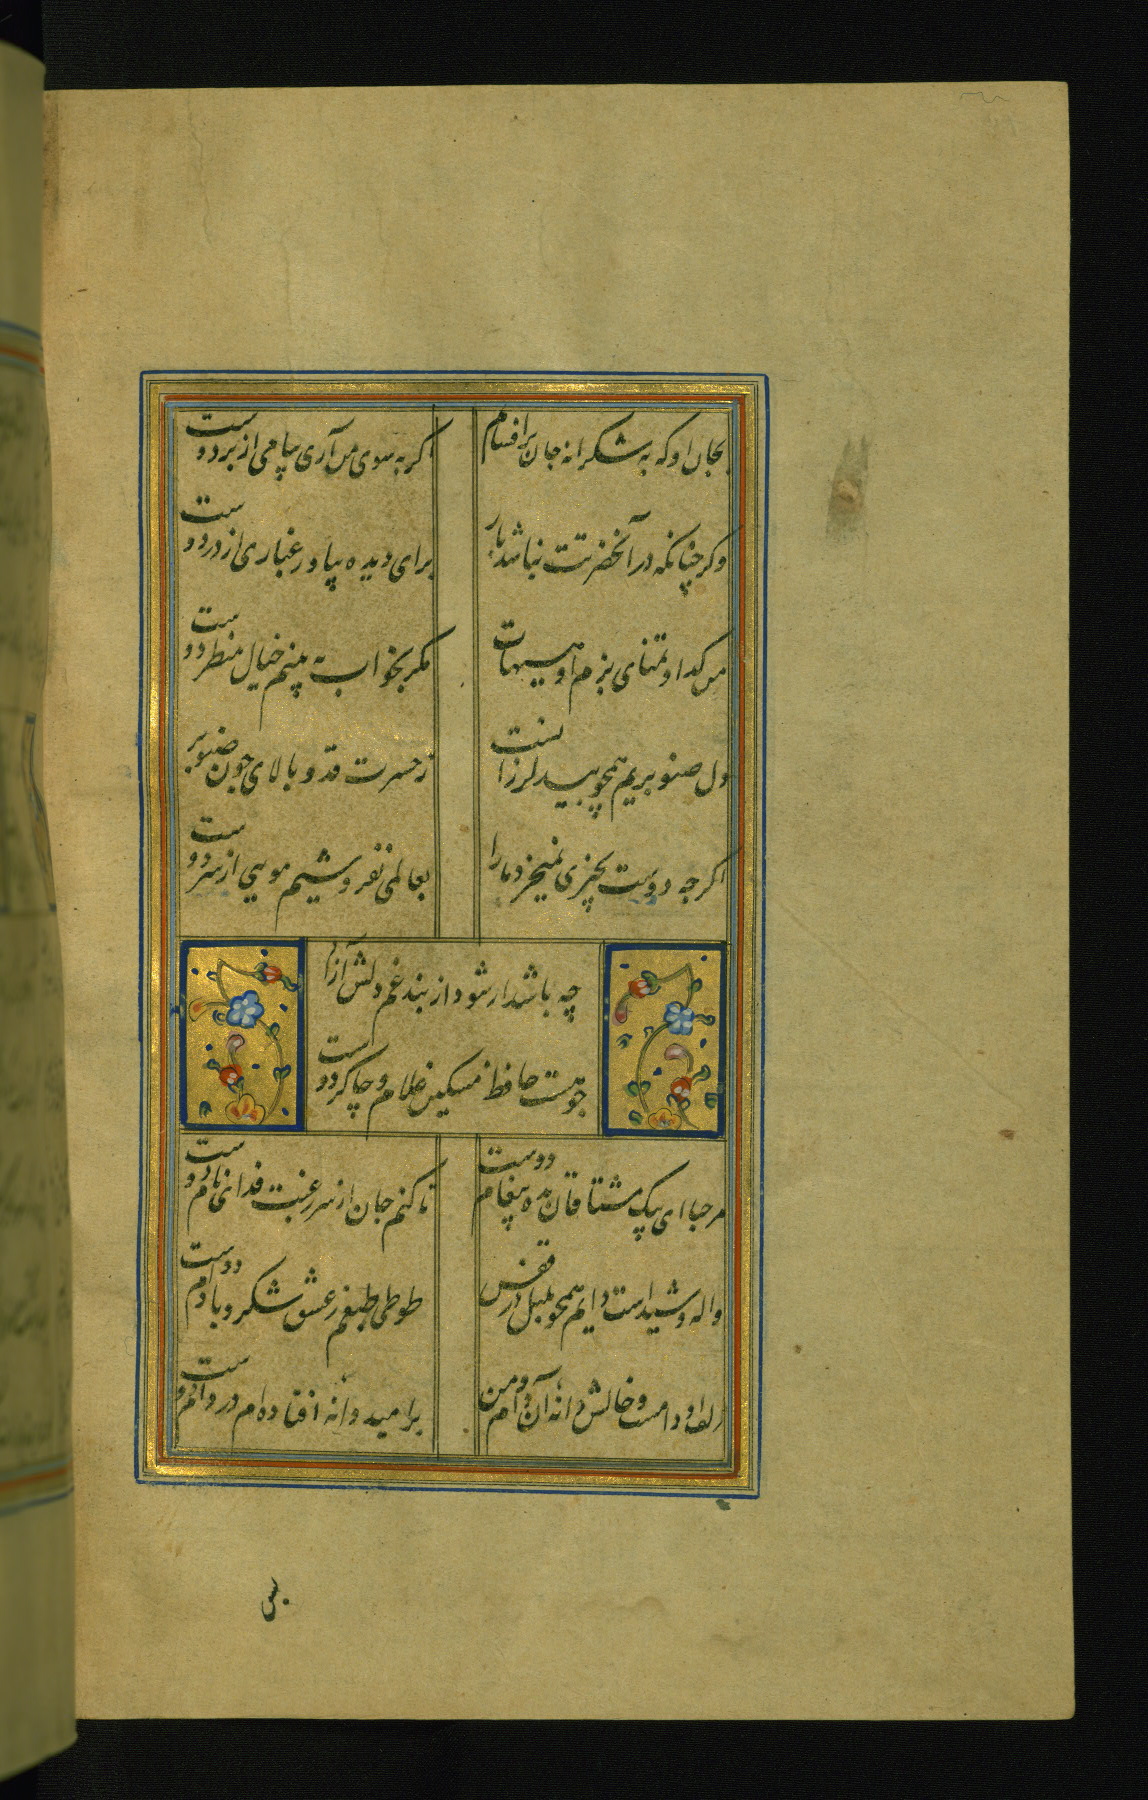 بجان او که به شکرانه جان برافشانم
اگر به سوی من آری پیامی از بر دوست
وگر چنانکه در آنحضرتت نباشد بار
برای دیده بیاور غباری از در دوست
من گدا و تمنای بزم او هیهات
مگر بخواب به بینم خیال منظر دوست
دل صنوبریم همچو بید لرزانست
ز حسرت قد و بالای چون صنوبر دوست
اگر چه دوست بچیزی نمیخرد ما را
بعالمی نفروشیم مویی از سر دوست
چه باشد ار شود از بند غم دلش آزاد
چو هست حافظ مسکین غلام و چاکر دوست
مرحبا ای پیک مشتاقان بده پیغام دوست
تا کنم جان از سر رغبت فدای نام دوست
واله و شیداست دایم همچو بلبل در قفس
طوطی طبعم ز عشق شکر و بادام دوست
زلف او دامست و خالش دانه آن دام و من
بر امید دانه افتاده‌ام در دام دوست